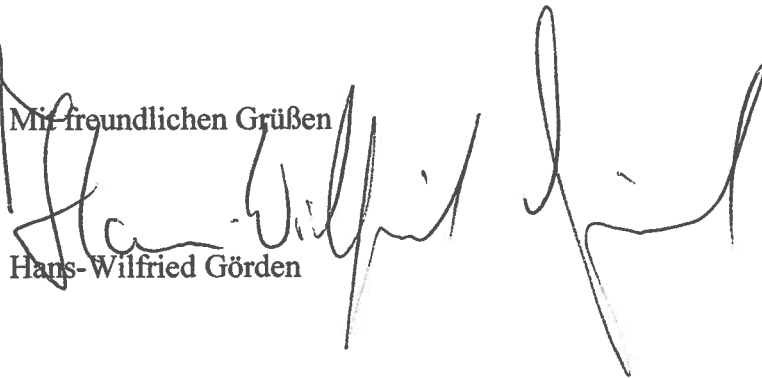 Mit freundlichen Grüßen
Hans-Wilfried Görden